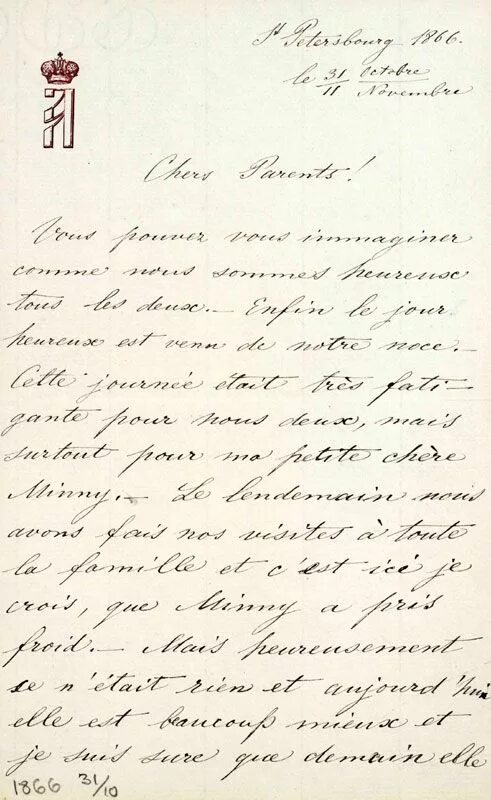 St Petersbourg 1866.
le 31/11 Octobre/Novembre
A
Chers Parents!
Vous pouvez vous immaginer
comme nous sommes heureux
tous les deux. — Enfin le jour
heureux est venu de notre noce. —
Cette journée était très fati-
gante pour nous deux, mais
surtout pour ma petite chère
Minny. — Le lendemain nous
avons fais nos visites à toute
la famille et c'est ici je
crois, que Minny a pris
froid. — Mais heureusement
ce n'était rien et aujourd'hui
elle est beaucoup mieux et
je suis sure que demain elle
1866 31/10